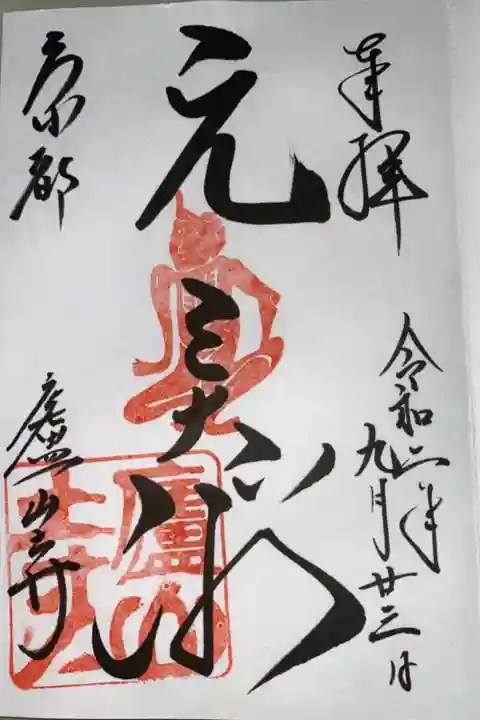 奉拝
令和二年
九月廿三日
元三大師
京都
廬山寺